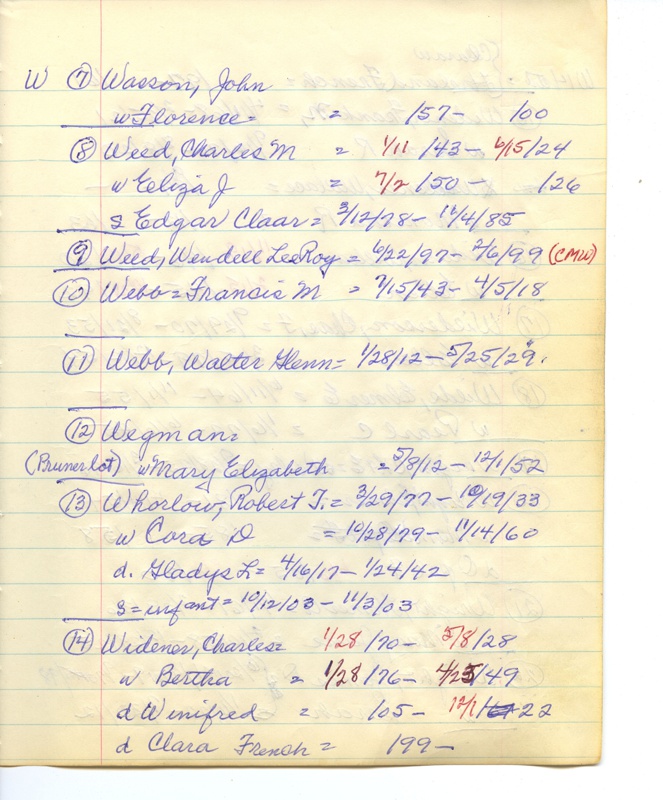 W ⑦ Wasson, John
w Florence = = /57 - /00
⑧ Weed, Charles M = 1/11 /43 - 6/15/24
w Eeliza J = 7/2 /50 - /26
s Edgar Claar = 3/12/78 - 11/4/85
⑨ Weed, Wendell LeeRoy = 6/22/97 - 2/6/99 (CMW)
⑩ Webb = Francis M = 7/15/43 - 4/5/18
⑪ Webb, Walter Glenn = 1/28/12 - 5/25/29.
⑫ Wegman =
(Pruner lot) w Mary Elizabeth = 5/8/12 - 12/1/52
⑬ Whorlow, Robert T. = 3/29/77 - 10/19/33
w Cora D = 10/28/79 - 11/14/60
d. Gladys L = 4/16/17 - 1/24/42
s = infant = 10/12/03 - 11/3/03
⑭ Widener, Charles = 1/28 /70 - 5/8/28
w Bertha = 1/28 /76 - 4/25/49
d Winifred = /05 - 12/1/22
d Clara French = 199 -